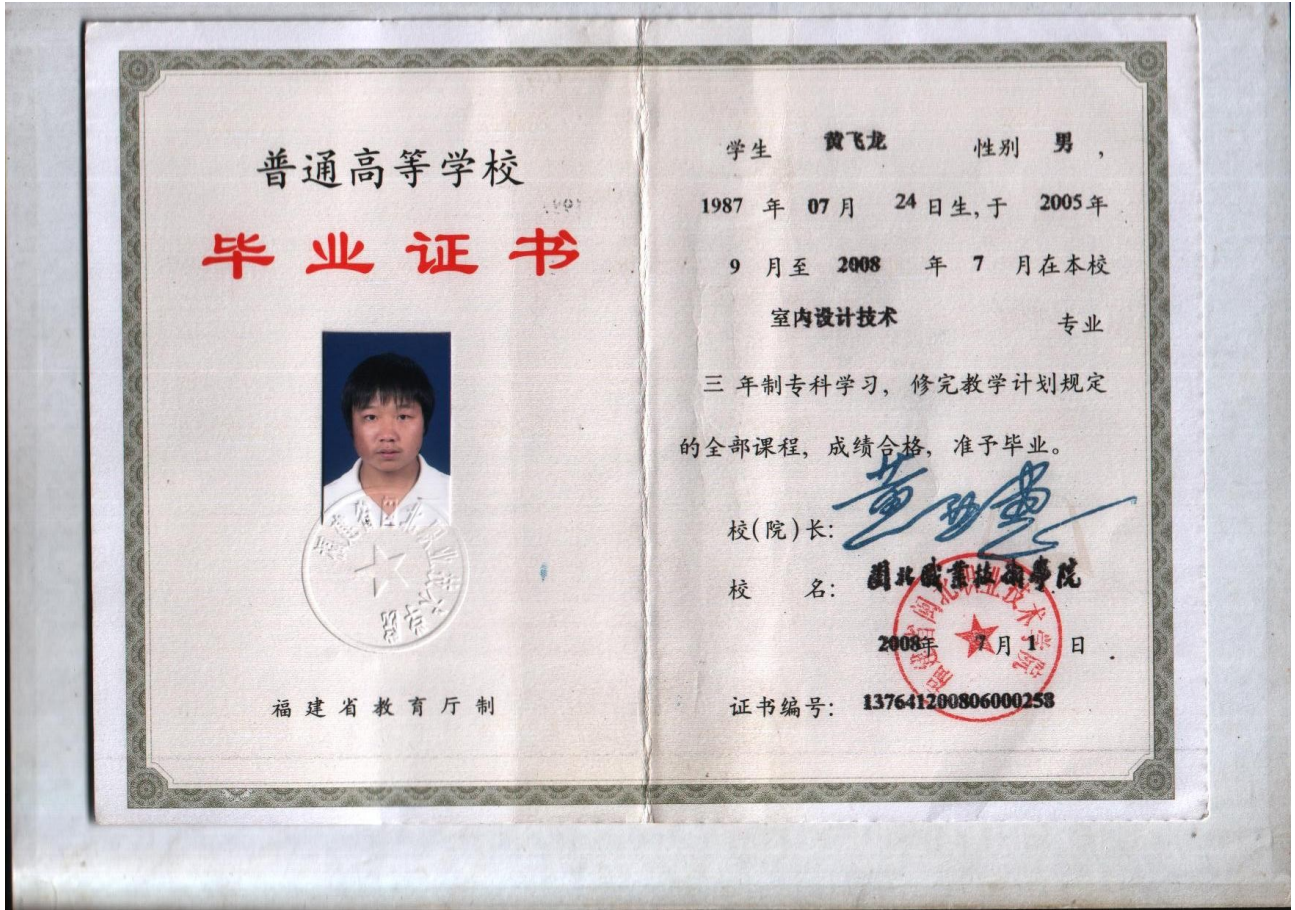 普通高等学校
毕业证书
福建省闽北职业技术学院
福建省教育厅制
学生 黄飞龙 性别 男,
1987 年 07 月 24 日生,于 2005年
9 月至 2008 年 7 月在本校
室内设计技术 专业
三 年制专科学习, 修完教学计划规定
的全部课程, 成绩合格, 准予毕业。
校(院)长:
校 名: 闽北職業技術學院
福建省闽北职业技术学院
2008年 7月 1 日
证书编号: 137641200806000258